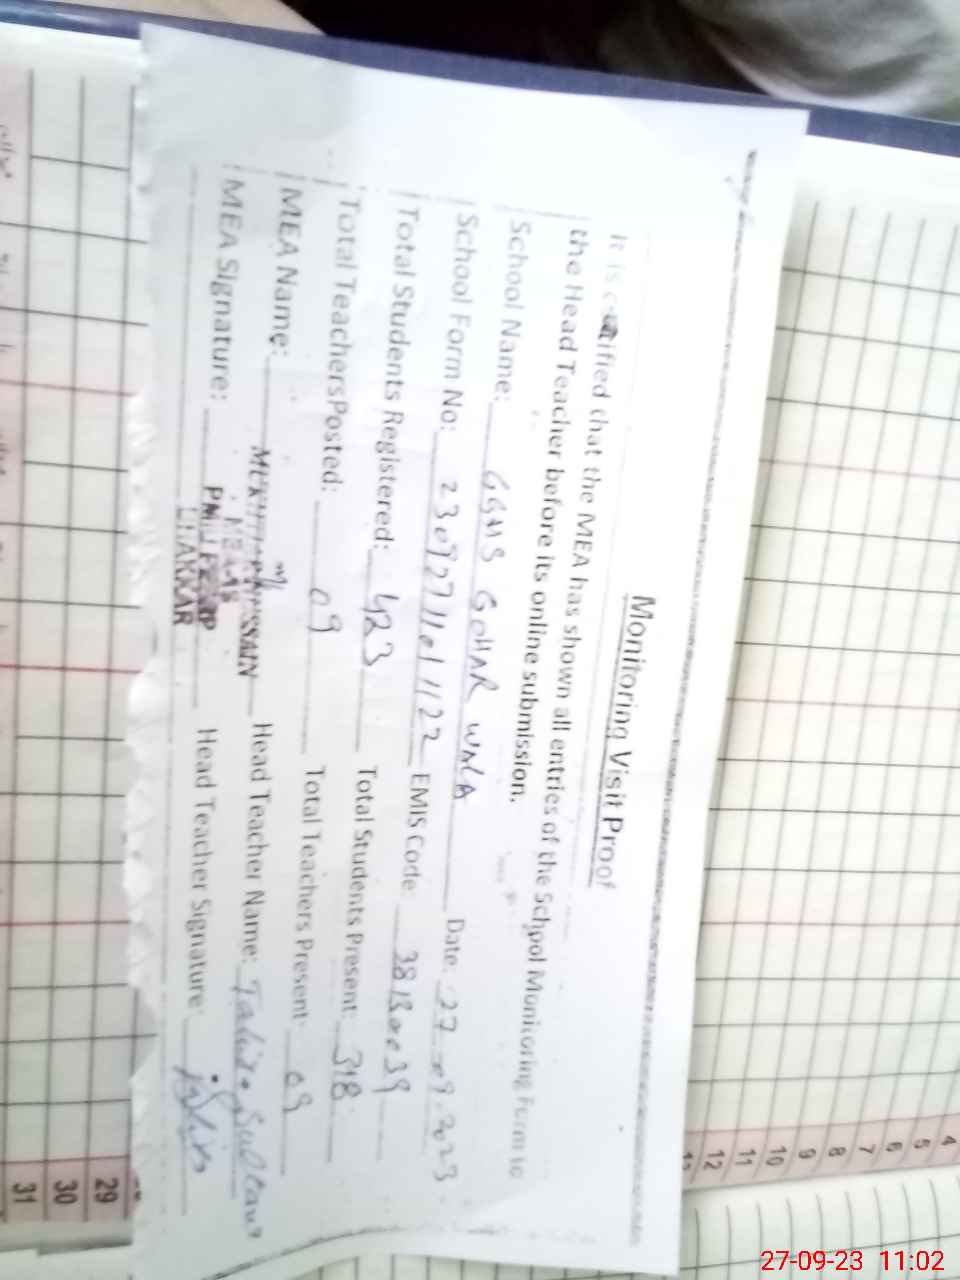 Monitoring Visit Proof
It is certified that the MEA has shown all entries of the School Monitoring Form to
the Head Teacher before its online submission.
School Name: GGMS GOHAR WALA Date: 27-09-2023
School Form No: 2309271101122 EMIS Code: 38130039
Total Students Registered: 423 Total Students Present: 318
Total TeachersPosted: 09 Total Teachers Present: 09
MEA Name: MUKHTAR HUSSAIN Head Teacher Name: Tahira Sultana
MEA Signature: Head Teacher Signature:
BHAKKAR
4
5
6
7
8
9
10
11
12
29
30
31
27-09-23 11:02